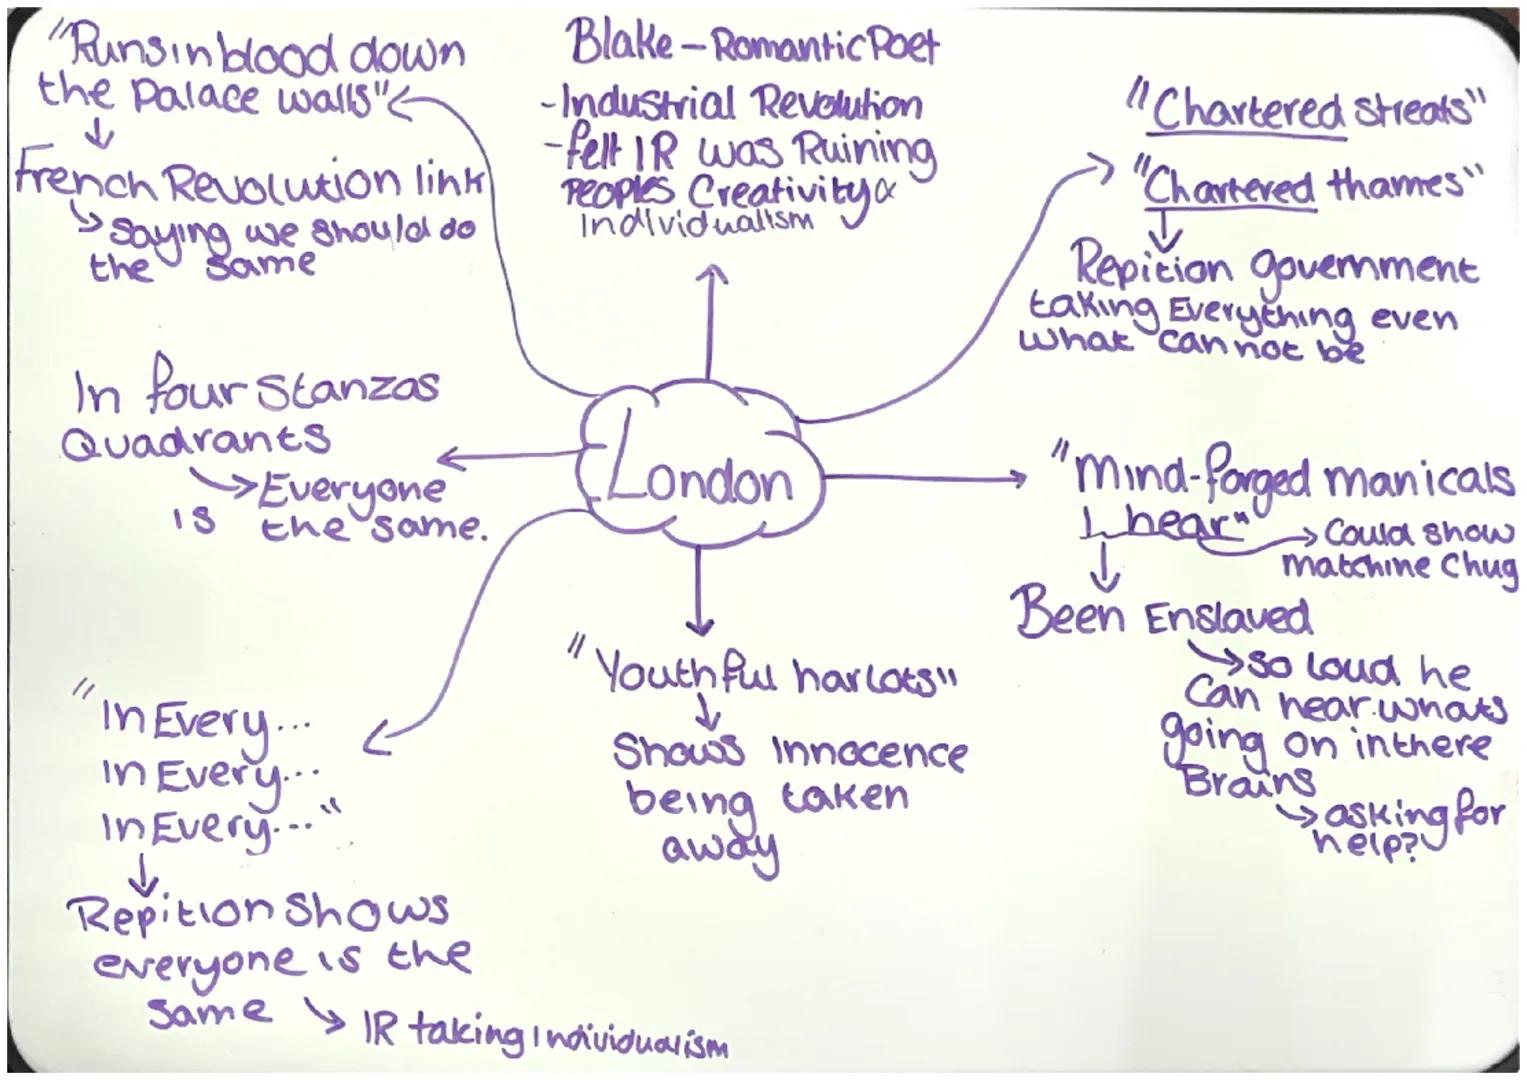 "Runs in blood down
the Palace walls"
French Revolution link
Saying we should do
the same
Blake - Romantic Poet
- Industrial Revolution
- felt IR was Ruining
PEOPLES Creativity &
Individualism
"Chartered streats"
"Chartered thames"
Repition government
taking Everything even
what can not be
In four Stanzas
Quadrants
Everyone
is the same.
London
"Mind-forged manicals
I hear"
Could show
matchine Chug
Been Enslaved
so loud he
Can hear whats
going on in there
Brains
asking for
help?
"Youthful harlots"
Shows innocence
being taken
away
"In Every...
In Every...
In Every..."
Repition Shows
everyone is the
same
IR taking Individualism